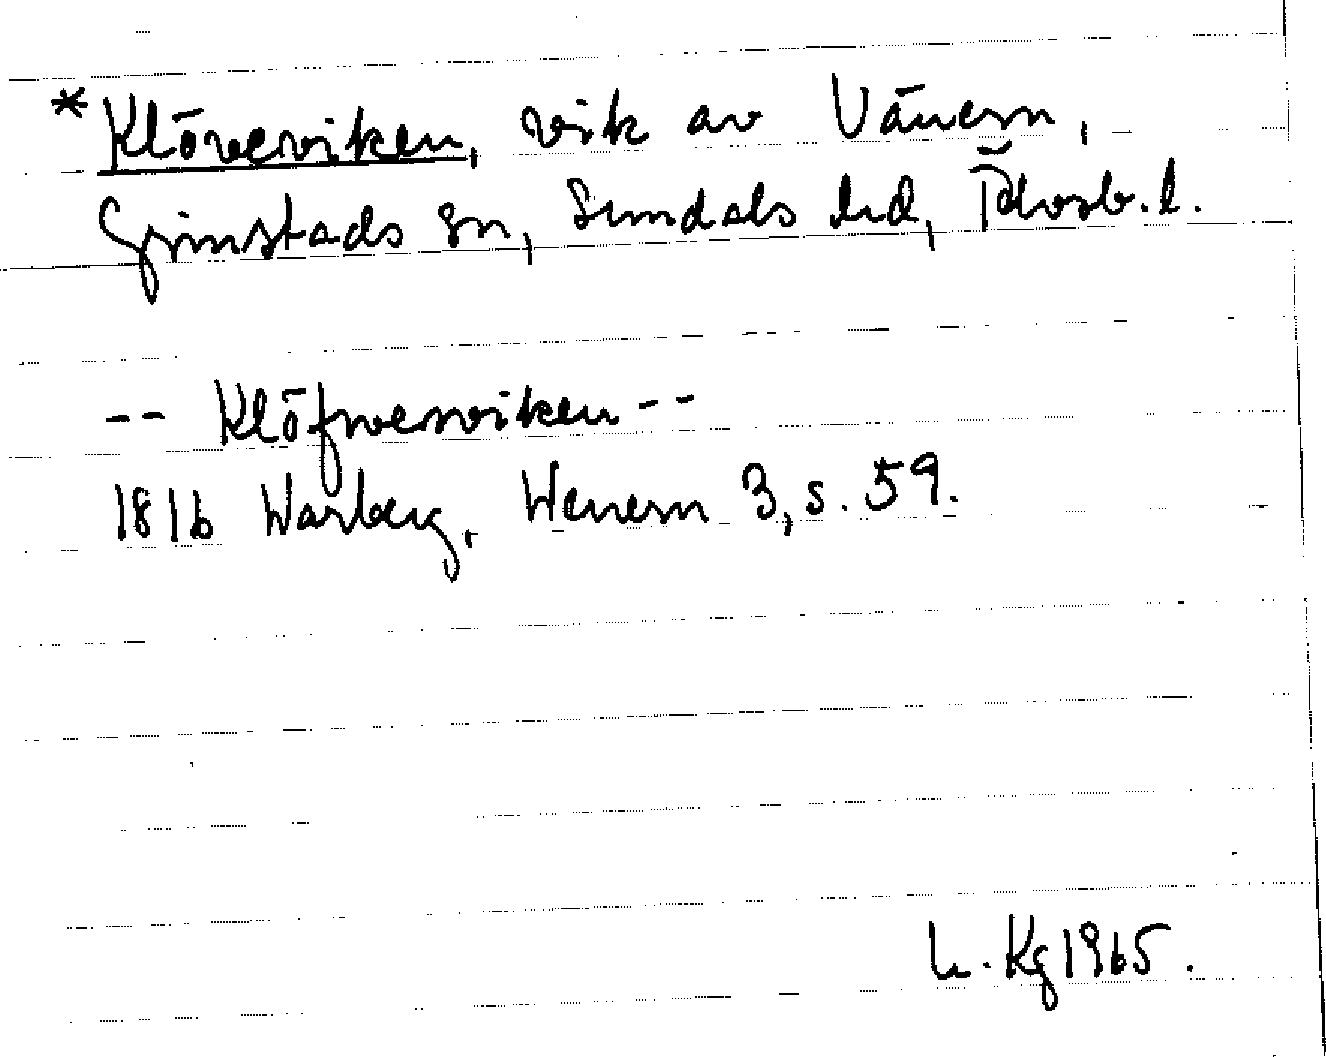 *Klöveviken, vik av Vänern,
Grinstads sn, Sundals hd, Älvsb. l.
-- Klöfwerwiken --
1816 Warberg, Wenern 3, s. 59.
L. Kg 1965.